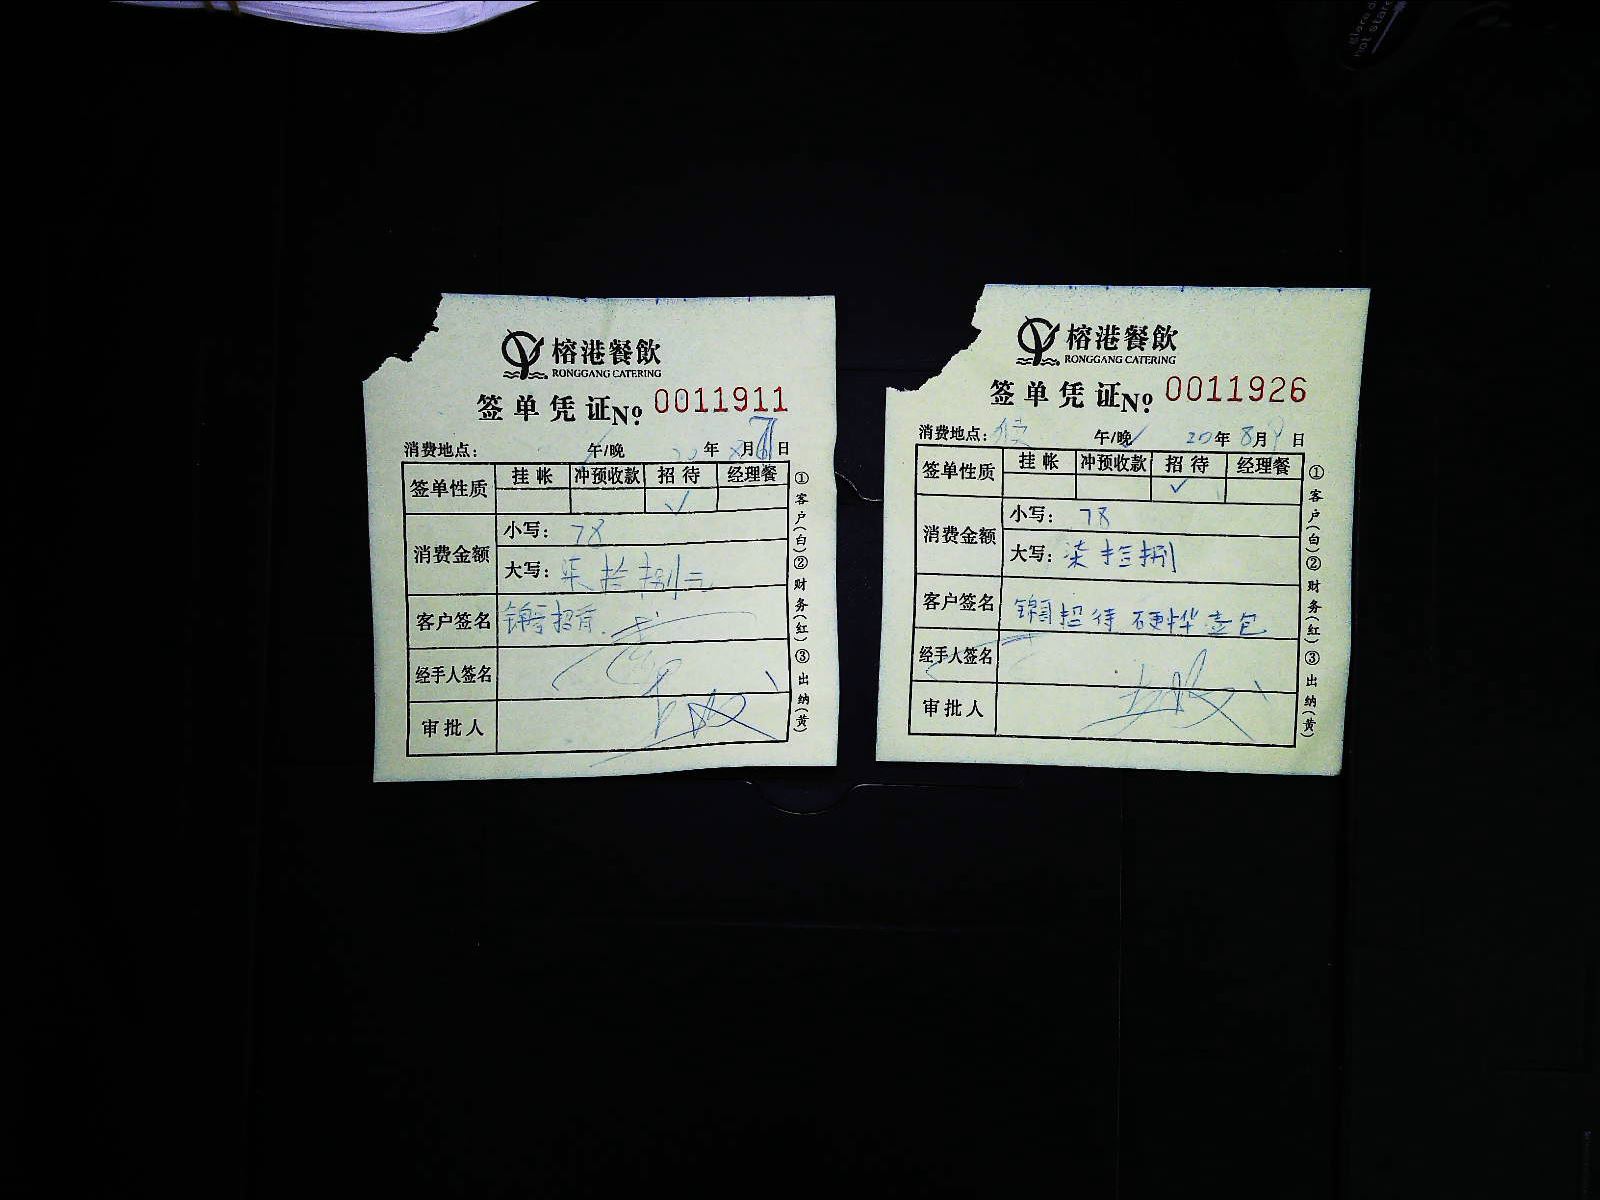 榕港餐飲
RONGGANG CATERING
签单凭证№ 0011911
消费地点: 午/晚 20年8月7日
签单性质 挂帐 冲预收款 招待 经理餐
✓
消费金额 小写: 78
大写: 柒拾捌元
客户签名 锦哥招
经手人签名
审批人
①客户(白)②财务(红)③出纳(黄)
榕港餐飲
RONGGANG CATERING
签单凭证№ 0011926
消费地点: 午/晚✓ 20年8月9日
签单性质 挂帐 冲预收款 招待 经理餐
✓
消费金额 小写: 78
大写: 柒拾捌
客户签名 锦哥招待硬中华壹包
经手人签名
审批人
①客户(白)②财务(红)③出纳(黄)